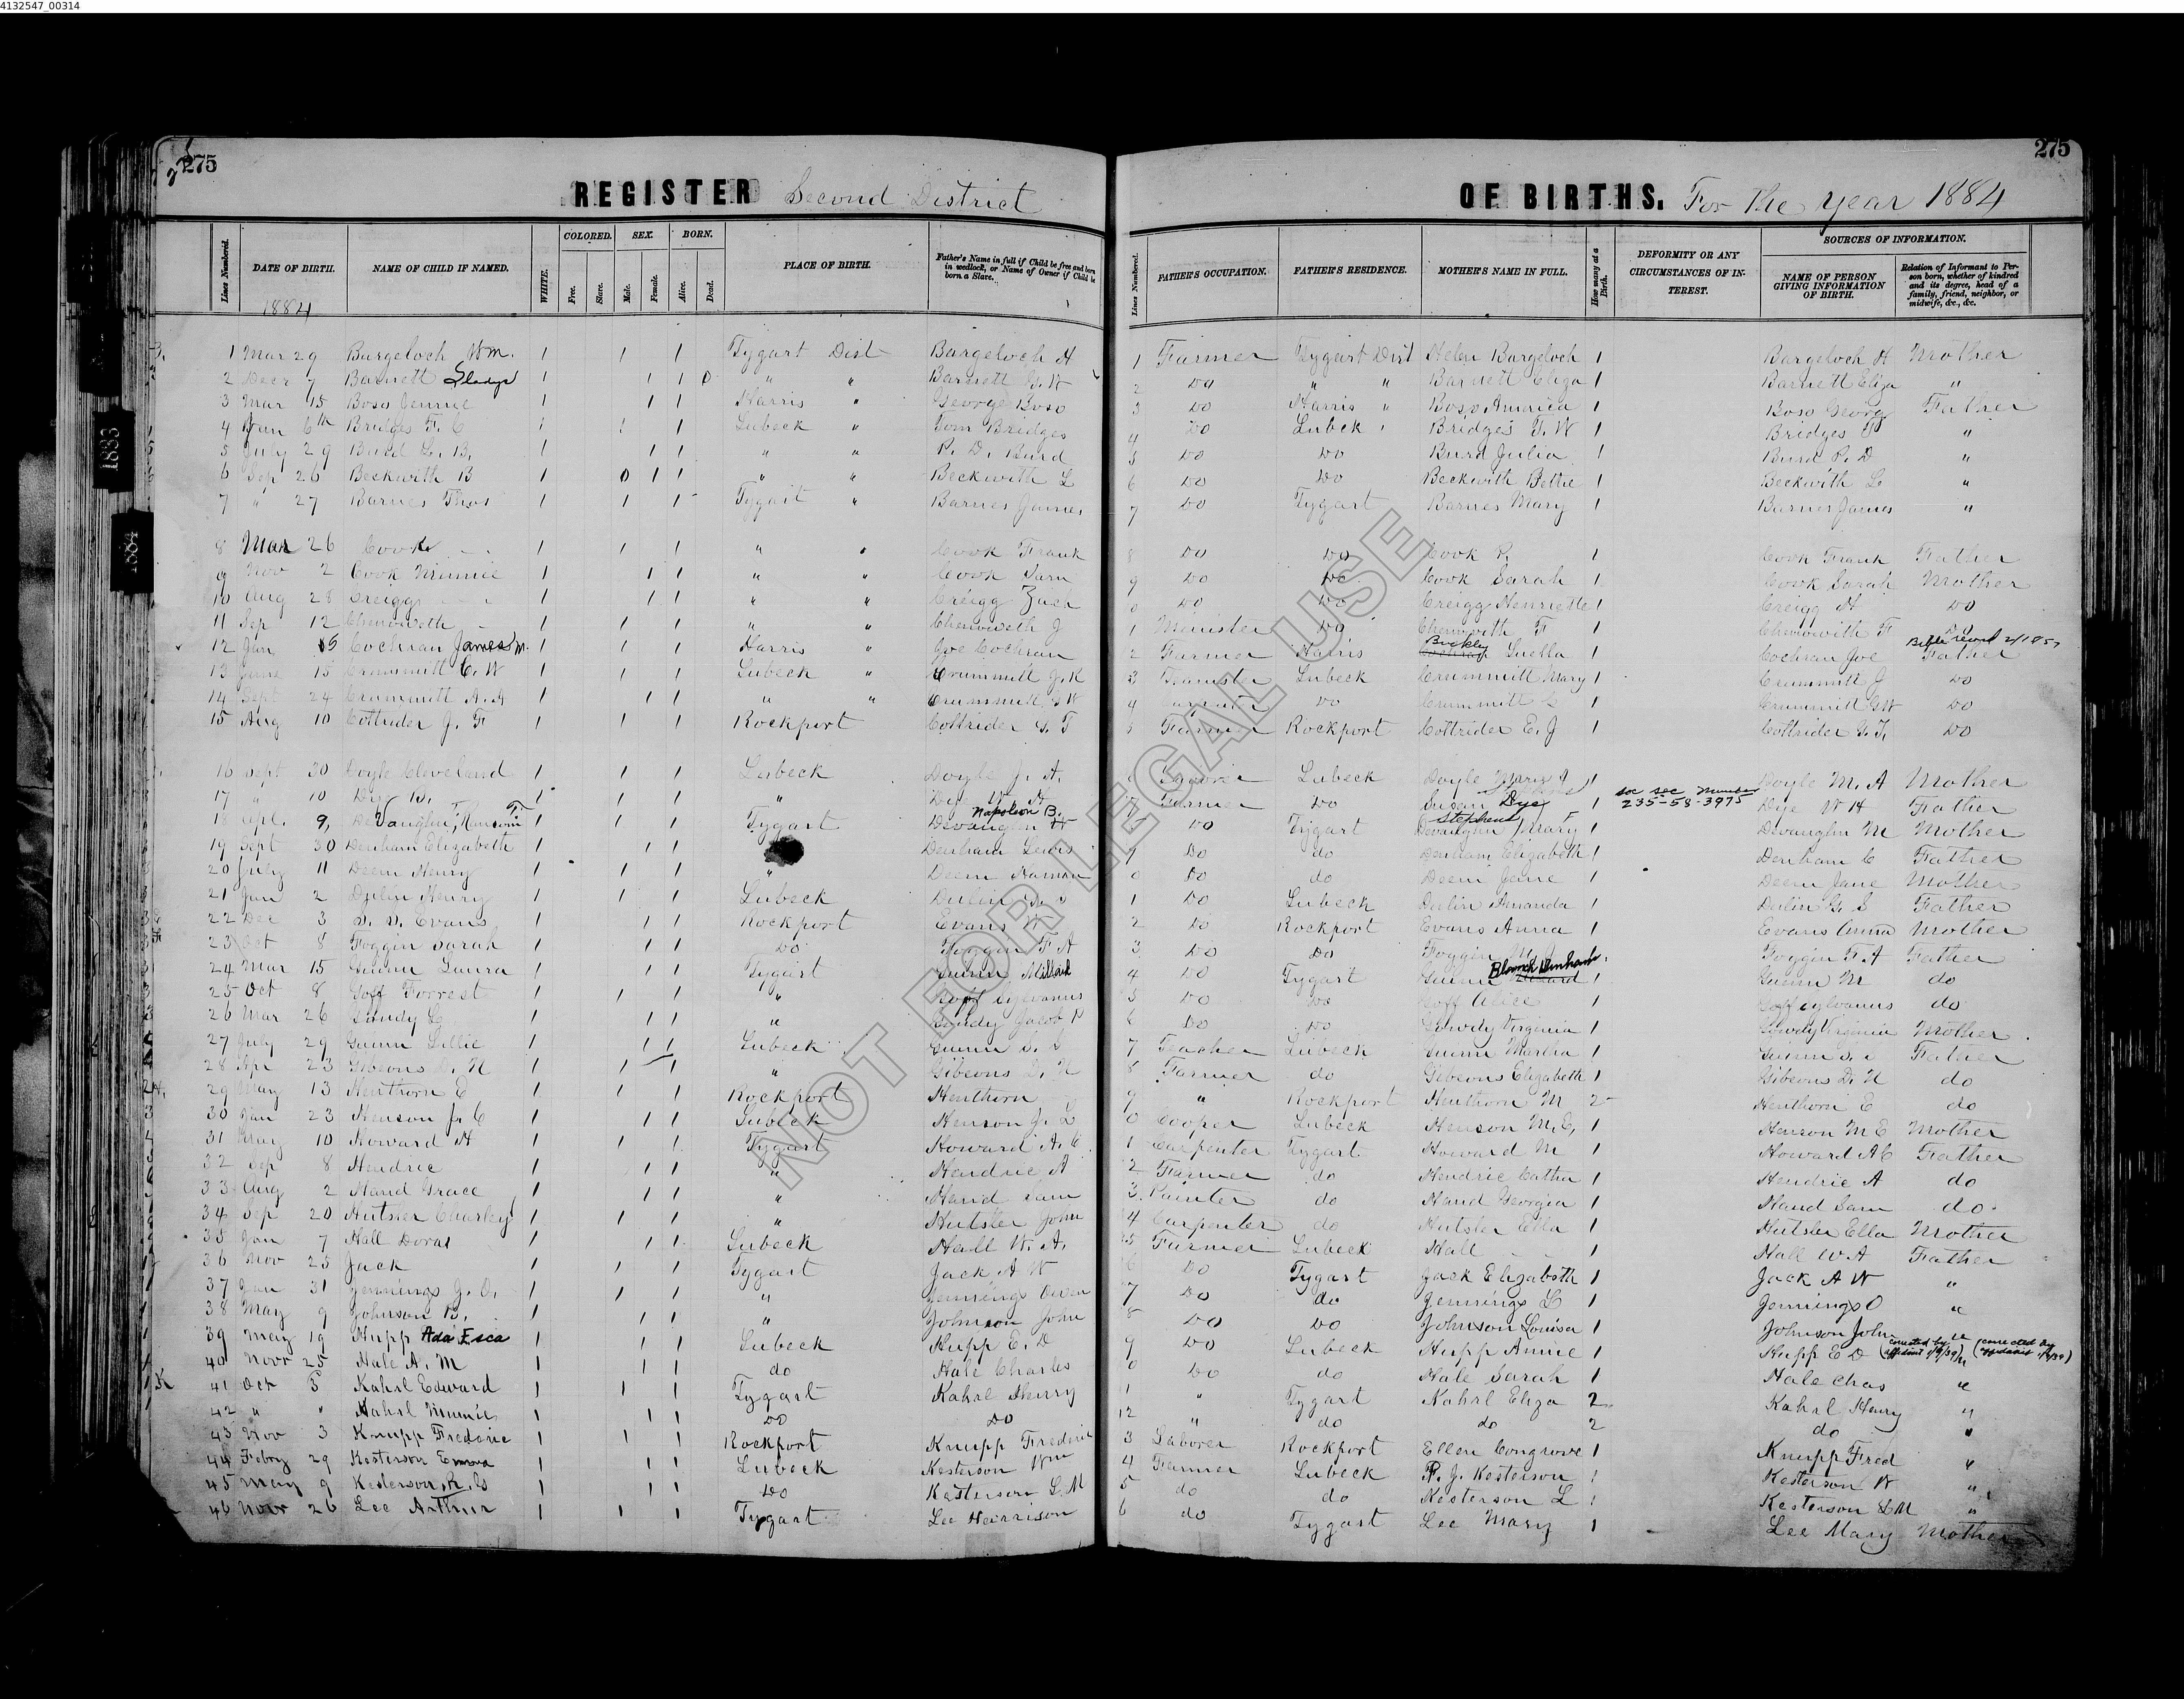 4132547_00314
275
REGISTER Second District
OF BIRTHS. For the year 1884
275
Lines Numbered. DATE OF BIRTH. NAME OF CHILD IF NAMED. WHITE. COLORED. Free. Slave. SEX. Male. Female. BORN. Alive. Dead. PLACE OF BIRTH. Father's Name in full if Child be free and born in wedlock, or Name of Owner if Child be born a Slave.
Lines Numbered. FATHER'S OCCUPATION. FATHER'S RESIDENCE. MOTHER'S NAME IN FULL. How many at a Birth. DEFORMITY OR ANY CIRCUMSTANCES OF INTEREST. SOURCES OF INFORMATION. NAME OF PERSON GIVING INFORMATION OF BIRTH. Relation of Informant to Person born, whether of kindred and its degree, head of a family, friend, neighbor, or midwife, &c., &c.
1884
1883
1884
1 Mar 29 Bargeloch Wm. 1 1 1 Tygart Dist Bargeloch H 1 Farmer Tygart Dist Helen Bargeloch 1 Bargeloch H Mother
2 Decr 7 Barnett Gladys 1 1 1 " " Barnett G. W 2 Do " " Barnett Eliza 1 Barnett Eliza "
3 Mar 15 Boso Jennie 1 1 1 Harris " George Boso 3 Do Harris " Boso America 1 Boso Georg Father
4 Jan 6th Bridges F. C 1 1 1 Lubeck " Tom Bridges 4 Do Lubeck Bridges T. W 1 Bridges "
5 July 29 Burd L. B. 1 1 1 " " P. D. Burd 5 Do Do Burd Julia 1 Burd P. D "
6 Sep 26 Beckwith B 1 1 1 " " Beckwith L 6 Do Do Beckwith Bettie 1 Beckwith L "
7 " 27 Barnes Thos 1 1 1 Tygart " Barnes James 7 Do Tygart Barnes Mary 1 Barnes James "
8 Mar 26 Cook 1 1 1 " " Cook Frank 8 Do Do Cook P. 1 Cook Frank Father
9 Nov 2 Cook Minnie 1 1 1 " " Cook 9 Do Do Cook Sarah 1 Cook Sarah Mother
10 Aug 28 Creigg 1 1 1 " " Creigg Zach 0 Do Do Creigg Henriette 1 Creigg H Do
11 Sep 12 Chenoweth 1 1 1 " " Chenoweth J 1 Minister Do Chenoweth F 1 Chenowith F Do
12 Jan 15 Cochran James M. 1 1 1 Harris " Joe Cochran 2 Farmer Harris Buckley Luella 1 Cochran Joe Father Bible record
13 June 15 Crummitt C. W 1 1 1 Lubeck " Crummitt J. R 3 Lubeck Crummitt Mary 1 Crummitt J Do
14 Sept 24 Crummitt A. A 1 1 1 " " Crummitt G W 4 Do Crummitt 1 Crummitt G W Do
15 Aug 10 Cottrider J. F 1 1 1 Rockport Cottrider G. T 5 Farmer Rockport Cottrider E. J 1 Cottrider G. T. Do
16 Sept 30 Doyle Cleveland 1 1 1 Lubeck Doyle J. A. Lubeck Doyle Mary A 1 Doyle M. A Mother
17 " 10 Dye B. 1 1 1 " Dye W H Farmer Do Susan Dye 1 soc sec number 235-58-3975 Dye W H Father
18 Apl. 9, DeVaughn, Ransom F 1 1 1 Tygart Devaughn Napoleon B. Do Tygart Stephens Mary F 1 Devaughn M Mother
19 Sept 30 Denham Elizabeth 1 1 1 Denham Lewis 9 Do do Denham Elizabeth 1 Denham Father
20 July 11 Deem Henry 1 1 1 " Deem Naman 0 Do do Deem Jane 1 Deem Jane Mother
21 Jan 2 Dulin Henry 1 1 1 Lubeck Dulin G. S 1 Do Lubeck Dulin Amanda 1 Dulin G. S Father
22 Dec 3 Evans 1 1 1 Rockport Evans W 2 Do Rockport Evans Anna 1 Evans Anna Mother
23 Oct 8 Foggin Sarah 1 1 1 Do Foggin F A 3 Do Do Foggin M 1 Foggin F. A Father
24 Mar 15 Guinn Laura 1 1 1 Tygart Guinn Millard 4 Do Tygart Guinn 1 Guinn M do
25 Oct 8 Goff Forrest 1 1 1 " Goff Sylvanus 5 Do Do Goff Alice 1 Goff Sylvanus do
26 Mar 26 Gowdy L 1 1 1 " Gowdy Jacob P 6 Do Do Gowdy Virginia 1 Gowdy Virginia Mother
27 July 29 Guinn Lillie 1 1 1 Lubeck Guinn S. S 7 Teacher Lubeck Guinn Martha 1 Guinn S. S Father
28 Apr 23 Gibeons D. N 1 1 1 " Gibeons D. N 8 Farmer do Gibeons Elizabeth 1 Gibeons D. N do
29 May 13 Henthorn E 1 1 1 Rockport Henthorn 9 " Rockport Henthorn M 2 Henthorn E do
30 Jan 23 Henson J. C 1 1 1 Lubeck Henson J. L 0 Cooper Lubeck Henson M. E, 1 Henson M E Mother
31 May 10 Howard H 1 1 1 Tygart Howard A. C 1 Carpenter Tygart Howard M 1 Howard A C Father
32 Sep 8 Hendric 1 1 1 " Hendric A 2 Farmer do Hendric Catha 1 Hendric A do
33 Aug 2 Hand Grace 1 1 1 " Hand Sam 3 Painter do Hand Georgia 1 Hand Sam do
34 Sep 20 Hutsler Charley 1 1 1 " Hutsler John 4 Carpenter do Hutsler Ella 1 Hutsler Ella Mother
35 Jan 7 Hall Doras 1 1 1 Lubeck Hall W. A. 5 Farmer Lubeck Hall 1 Hall W A Father
36 Nov 25 Jack 1 1 1 Tygart Jack A W 6 Do Tygart Jack Elizabeth 1 Jack A W "
37 Jan 31 Jennings J. O. 1 1 1 " Jennings Owen 7 Do do Jennings L 1 Jennings O "
38 May 9 Johnson B. 1 1 1 " Johnson John 8 Do Do Johnson Louisa 1 Johnson John "
39 May 19 Hupp Ada Esca 1 1 1 Lubeck Hupp E. D 9 Do Lubeck Hupp Annie 1 Hupp E D (corrected by affidavit 1/9/39) (corrected by affidavit 1/9/39)
40 Novr 25 Hale A. M 1 1 1 do Hale Charles 0 Do do Hale Sarah 1 Hale Chas "
K 41 Oct 5 Kahrl Edward 1 1 1 Tygart Kahrl Henry 1 " Tygart Kahrl Eliza 2 Kahrl Henry "
42 " " Kahrl Minnie 1 1 1 Do Do 12 " do do 2 do "
43 Nov 3 Knupp Frederic 1 1 1 Rockport Knupp Frederic 3 Laborer Rockport Ellen Congrove 1 Knupp Fred "
44 Febry 29 Kesterson Emma 1 1 1 Lubeck Kesterson Wm 4 Farmer Lubeck P. J. Kesterson 1 Kesterson W "
45 May 9 Kesterson R. 1 1 1 Do Kesterson L. M 5 do do Kesterson L 1 Kesterson L M "
46 Nov 26 Lee Arthur 1 1 1 Tygart Lee Harrison 6 do Tygart Lee Mary 1 Lee Mary Mother
NOT FOR LEGAL USE